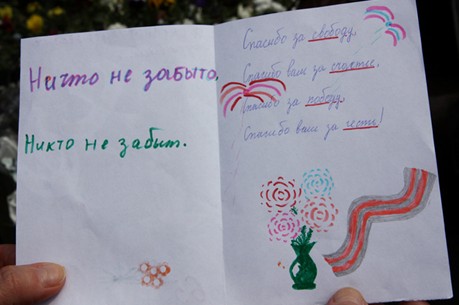 Ничто не забыто.
Никто не забыт.
Спасибо за свободу,
Спасибо вам за счастье.
Спасибо за победу,
Спасибо вам за честь!